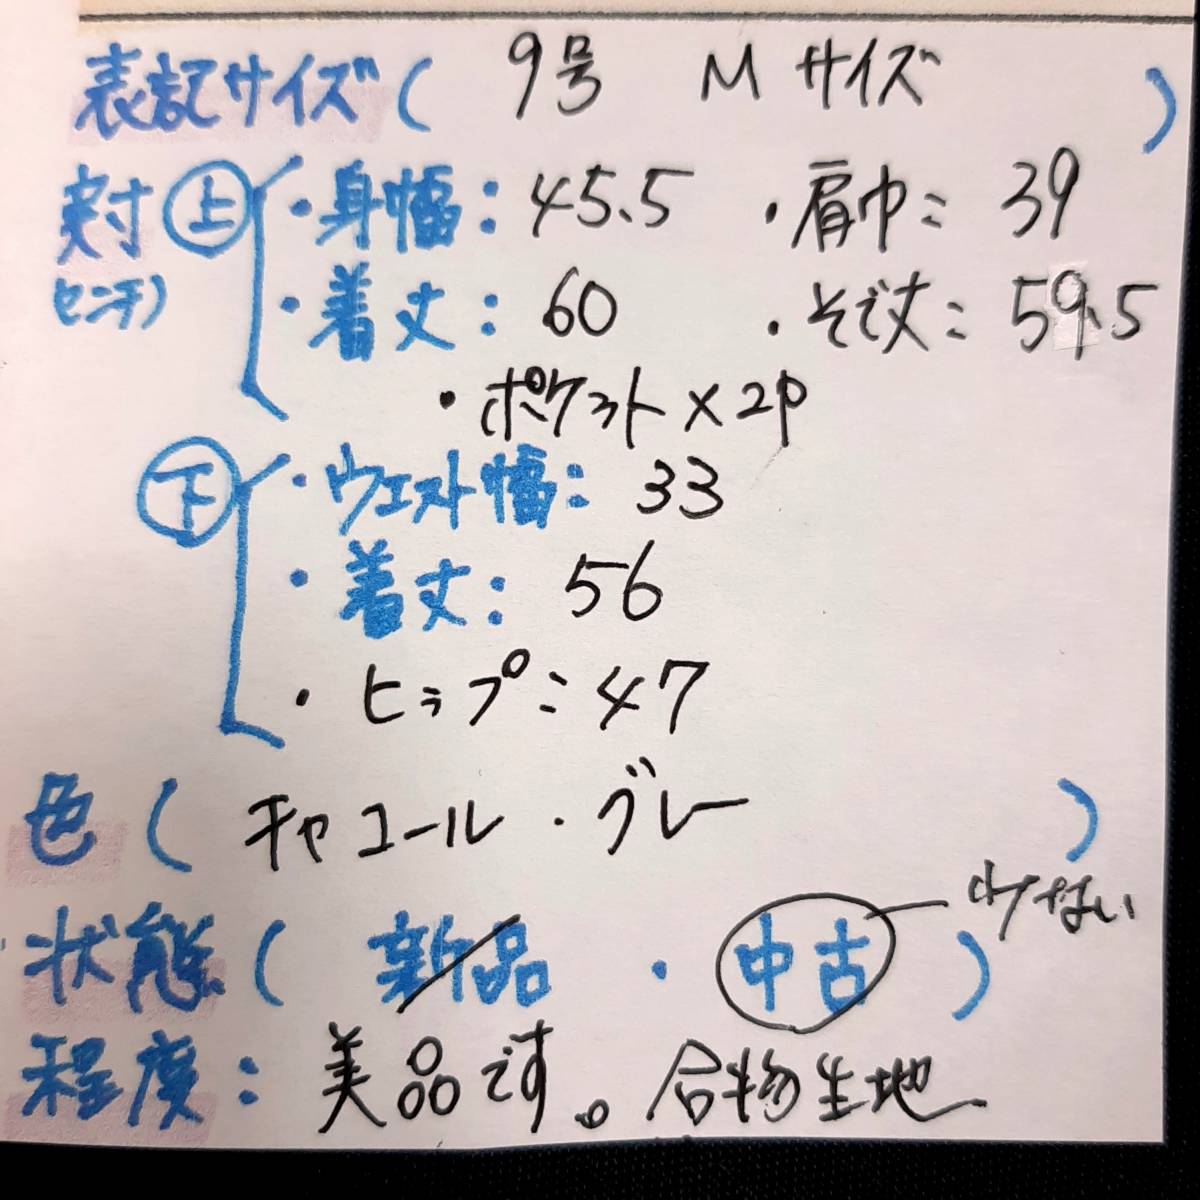 表記サイズ( 9号 Mサイズ )
実寸 上 ・身幅: 45.5 ・肩巾: 39
センチ) ・着丈: 60 ・そで丈: 59.5
・ポケット×2P
下 ・ウエスト幅: 33
・着丈: 56
・ヒップ: 47
色( チャコール・グレー )
少ない
状態( 新品 ・ 中古 )
程度: 美品です。合物生地